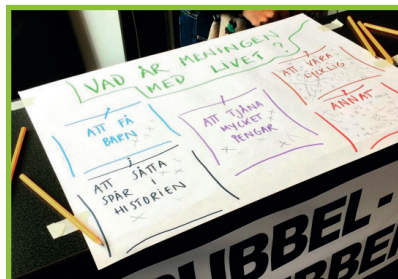 VAD ÄR MENINGEN
MED LIVET?
ATT FÅ
BARN
ATT TJÄNA
MYCKET
PENGAR
ATT VARA
LYCKLIG
ANNAT
ATT SÄTTA
SPÅR I
HISTORIEN
UBBEL-
UBBE